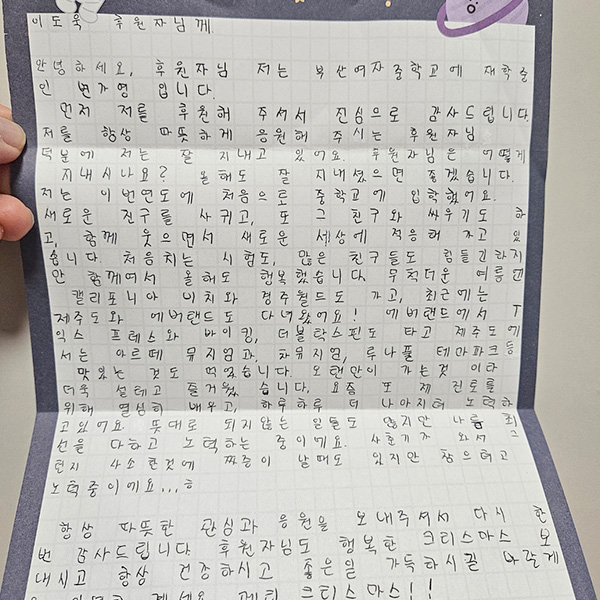 이도욱 후원자님께.
안녕하세요, 후원자님 저는 부산여자중학교에 재학중
인 변가영 입니다.
먼저 저를 후원해 주셔서 진심으로 감사드립니다.
저를 항상 따뜻하게 응원해 주시는 후원자님
덕분에 저는 잘 지내고 있어요. 후원자님은 어떻게
지내시나요? 올해도 잘 지내셨으면 좋겠습니다.
저는 이번연도에 처음으로 중학교에 입학했어요.
새로운 친구를 사귀고, 또 그 친구와 싸우기도 하
고, 함께 웃으면서 새로운 세상에 적응해 가고 있
습니다. 처음치는 시험도, 많은 친구들도 힘들긴하지
만 함께여서 올해도 행복했습니다. 무척더운 여름엔
캘리포니아 비치와 경주월드도 가고, 최근에는
제주도와 에버랜드도 다녀왔어요! 에버랜드에서 T
익스프레스와 바이킹, 더블락스핀도 타고 제주도에
서는 아르떼 뮤지엄과, 차뮤지엄, 루나폴 테마파크등
맛있는 것도 먹었습니다. 오랜만이 가는것 이라
더욱 설레고 즐거웠습니다. 요즘 또 제 진로를
위해 열심히 배우고, 하루하루 더 나아지려 노력하
고있어요. 뜻대로 되지않는 일들도 많지만 나름 최
선을 다하고 노력하는 중이에요. 사춘기가 와서 그
런지 사소한것에 짜증이 날때도 있지만 참으려고
노력중이에요...ㅎ
항상 따뜻한 관심과 응원을 보내주셔서 다시 한
번 감사드립니다. 후원자님도 행복한 크리스마스 보
내시고 항상 건강하시고 좋은일 가득하시길 바랄게
계세요 메리 크리스마스!!